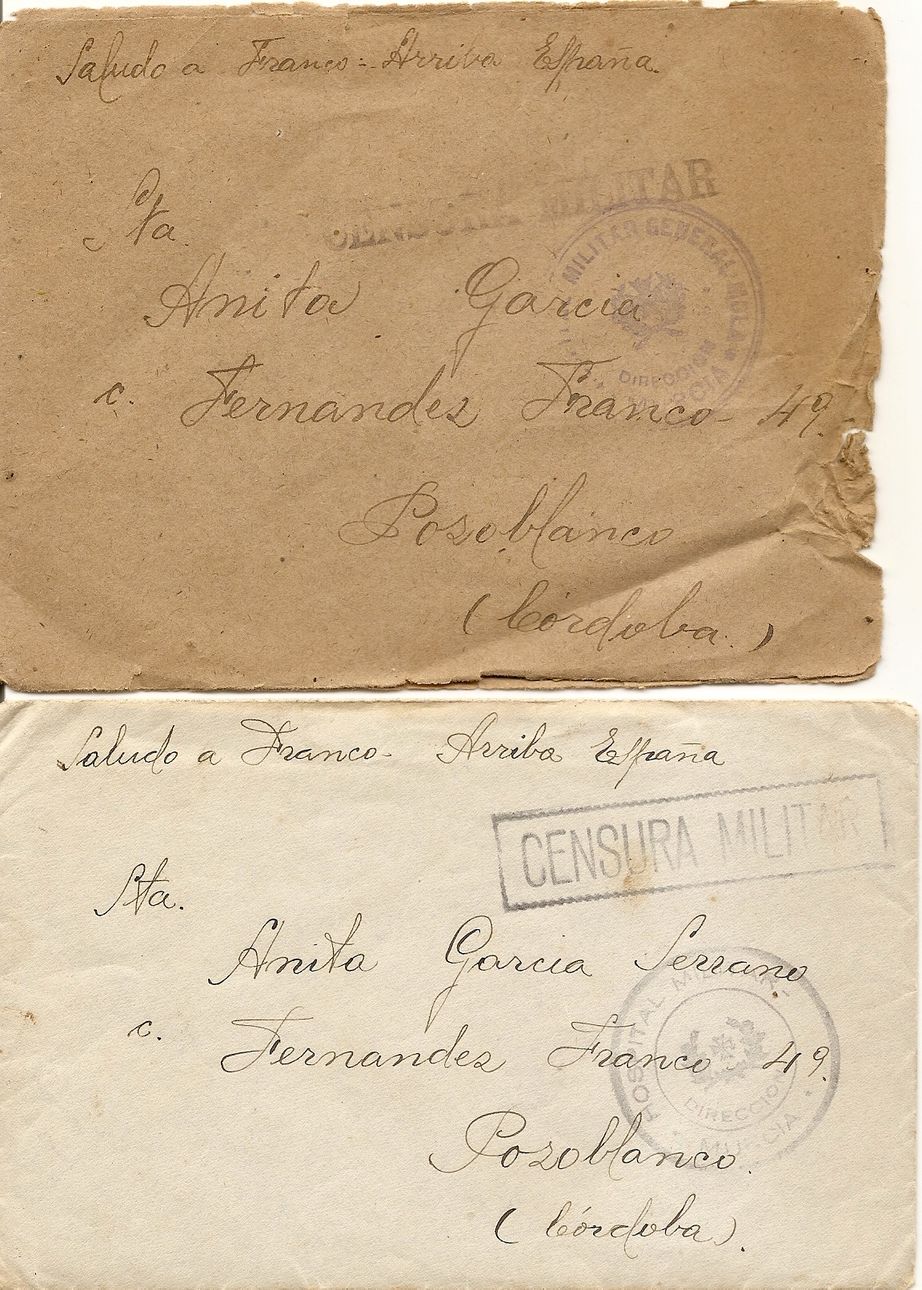 Saludo a Franco - Arriba España.
CENSURA MILITAR
MILITAR GENERAL MOLA
DIRECCION
MURCIA
Sta.
Anita Garcia
c. Fernandez Franco - 49.
Pozoblanco
(Córdoba.)
Saludo a Franco - Arriba España
CENSURA MILITAR
Sta.
Anita Garcia Serrano
HOSPITAL MILITAR
DIRECCION
MURCIA
c. Fernandez Franco 49.
Pozoblanco.
(Córdoba).